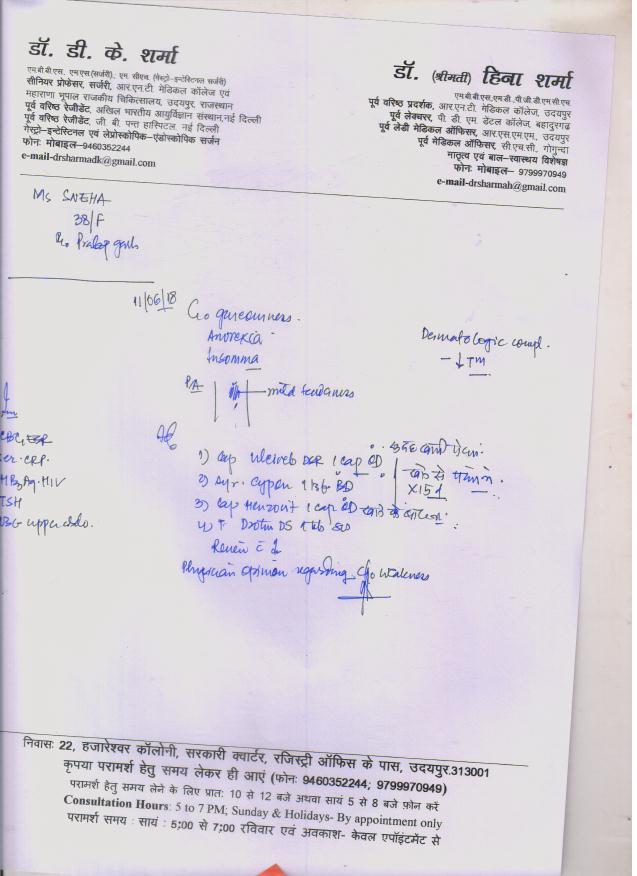 डॉ. डी. के. शर्मा
एम.बी.बी.एस. एम.एस(सर्जरी), एम. सीएच. (गैस्ट्रो-इन्टेस्टिनल सर्जरी)
सीनियर प्रोफेसर, सर्जरी, आर.एन.टी. मेडिकल कॉलेज एवं
महाराणा भूपाल राजकीय चिकित्सालय, उदयपुर, राजस्थान
पूर्व वरिष्ठ रेजीडेंट, अखिल भारतीय आयुर्विज्ञान संस्थान,नई दिल्ली
पूर्व वरिष्ठ रेजीडेंट, जी. बी. पन्त हास्पिटल, नई दिल्ली
गेस्ट्रो-इन्टेस्टिनल एवं लेप्रोस्कोपिक-एंडोस्कोपिक सर्जन
फोनः मोबाइल-9460352244
e-mail-drsharmadk@gmail.com
डॉ. (श्रीमती) हिना शर्मा
एम.बी.बी.एस,एम.डी.,पी.जी.डी.एम.सी.एच.
पूर्व वरिष्ठ प्रदर्शक, आर.एन.टी. मेडिकल कॉलेज, उदयपुर
पूर्व लेक्चरर, पी. डी. एम. डेंटल कॉलेज, बहादुरगढ़
पूर्व लेडी मेडिकल ऑफिसर, आर.एस.एम.एम, उदयपुर
पूर्व मेडिकल ऑफिसर, सी.एच.सी, गोगुन्दा
मातृत्व एवं बाल-स्वास्थय विशेषज्ञ
फोनः मोबाईल- 9799970949
e-mail-drsharmah@gmail.com
Ms SNEHA
38/F
R/o Pratap garh
11/06/18
Anorexia
Insomnia
Dermatologic compl.
P/A mild tenderness
CBC, ESR
Ser. CRP
HBsAg. HIV
TSH
USG upper abdo.
1) Cap DSR 1 cap OD
2) Syr. Cypon BD
X15d
3) Cap 1 cap OD
4) T Drotin DS 1 tab
Review
Physician opinion regarding C/o weakness
निवासः 22, हजारेश्वर कॉलोनी, सरकारी क्वार्टर, रजिस्ट्री ऑफिस के पास, उदयपुर.313001
कृपया परामर्श हेतु समय लेकर ही आएं (फोनः 9460352244; 9799970949)
परामर्श हेतु समय लेने के लिए प्रातः 10 से 12 बजे अथवा सायं 5 से 8 बजे फ़ोन करें
Consultation Hours: 5 to 7 PM; Sunday & Holidays- By appointment only
परामर्श समय : सायं : 5:00 से 7:00 रविवार एवं अवकाश- केवल एपॉइंटमेंट से